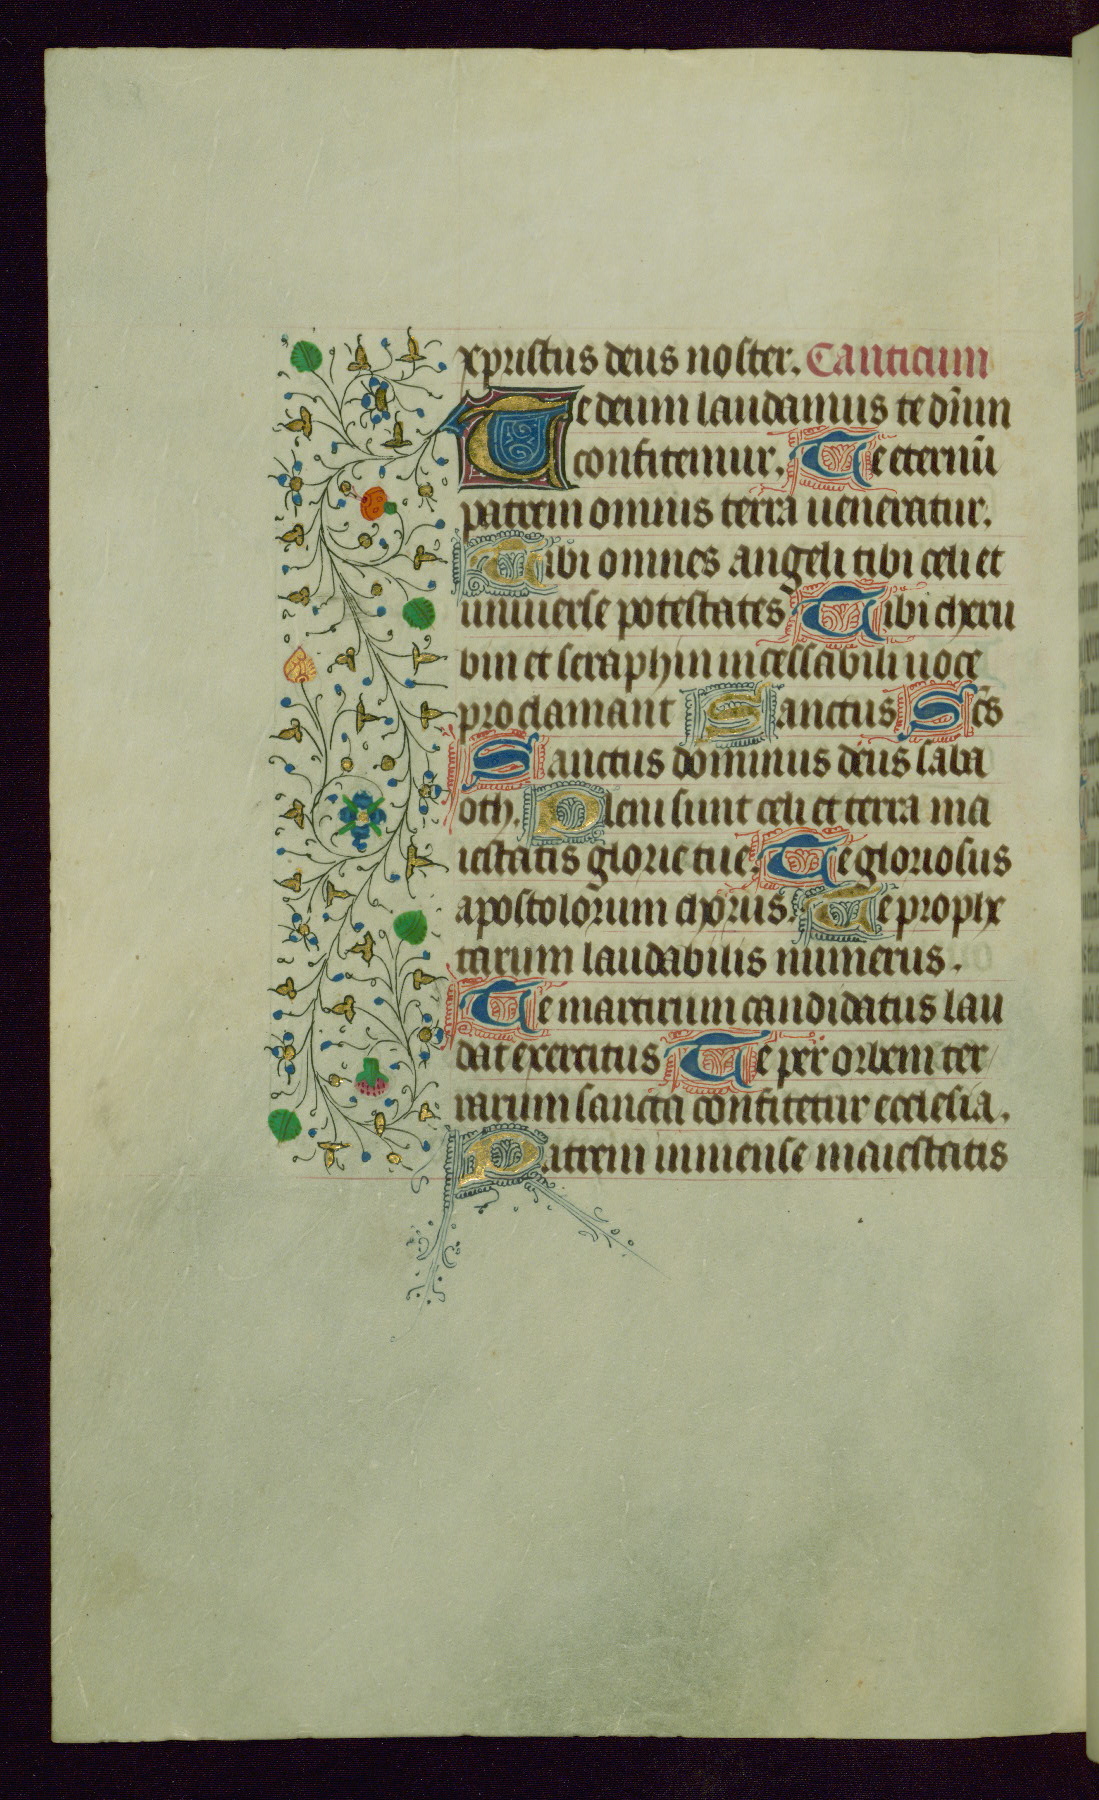 xpristus deus noster. Canticum
Te deum laudamus te dn̄m
confitemur. Te eternū
patrem omnis terra ueneratur.
Tibi omnes angeli tibi celi et
uniuerse potestates Tibi cheru
bin et seraphin incessabili uoce
proclamant Sanctus Sc̄s
Sanctus dominus deus saba
oth. Pleni sunt celi et terra ma
iestatis glorie tue. Te gloriosus
apostolorum chorus. Te prophe
tarum laudabilis numerus.
Te martirum candidatus lau
dat exercitus Te per orbem ter
rarum sancta confitetur ecclesia.
Patrem inmense maiestatis